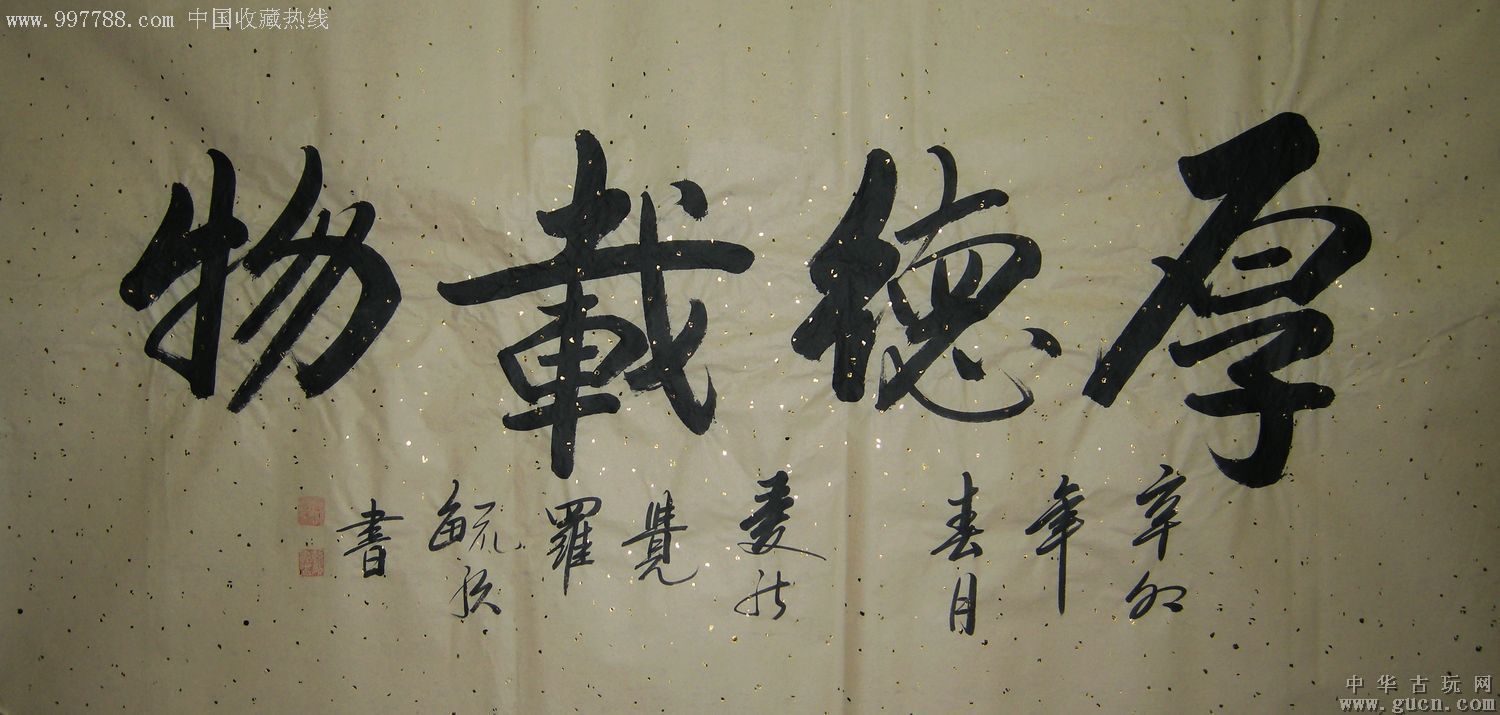 www.997788.com 中国收藏热线
厚德載物
辛卯年春月愛新覺羅毓
書
中华古玩网
www.gucn.com